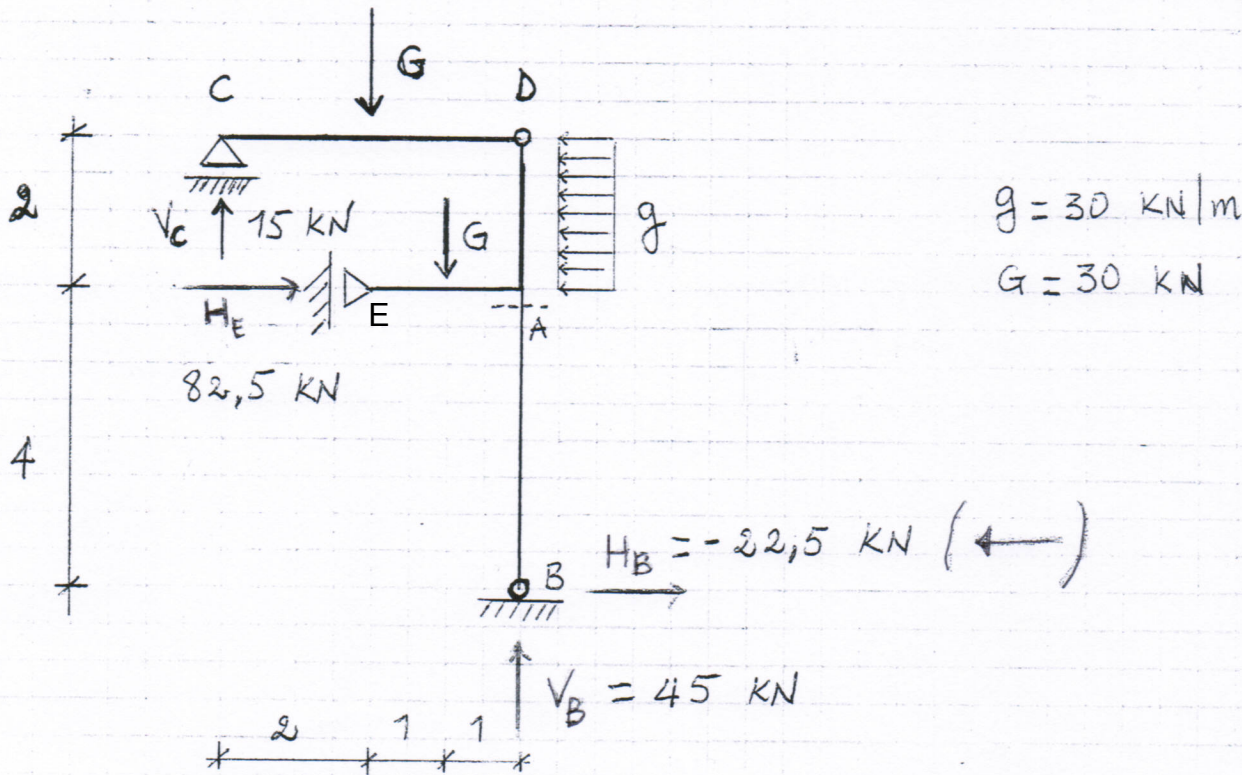 G
C D
2
V_C 15 KN
G
g
g = 30 KN/m
G = 30 KN
H_E
E
A
82,5 KN
4
H_B = - 22,5 KN (←)
B
V_B = 45 KN
2 1 1